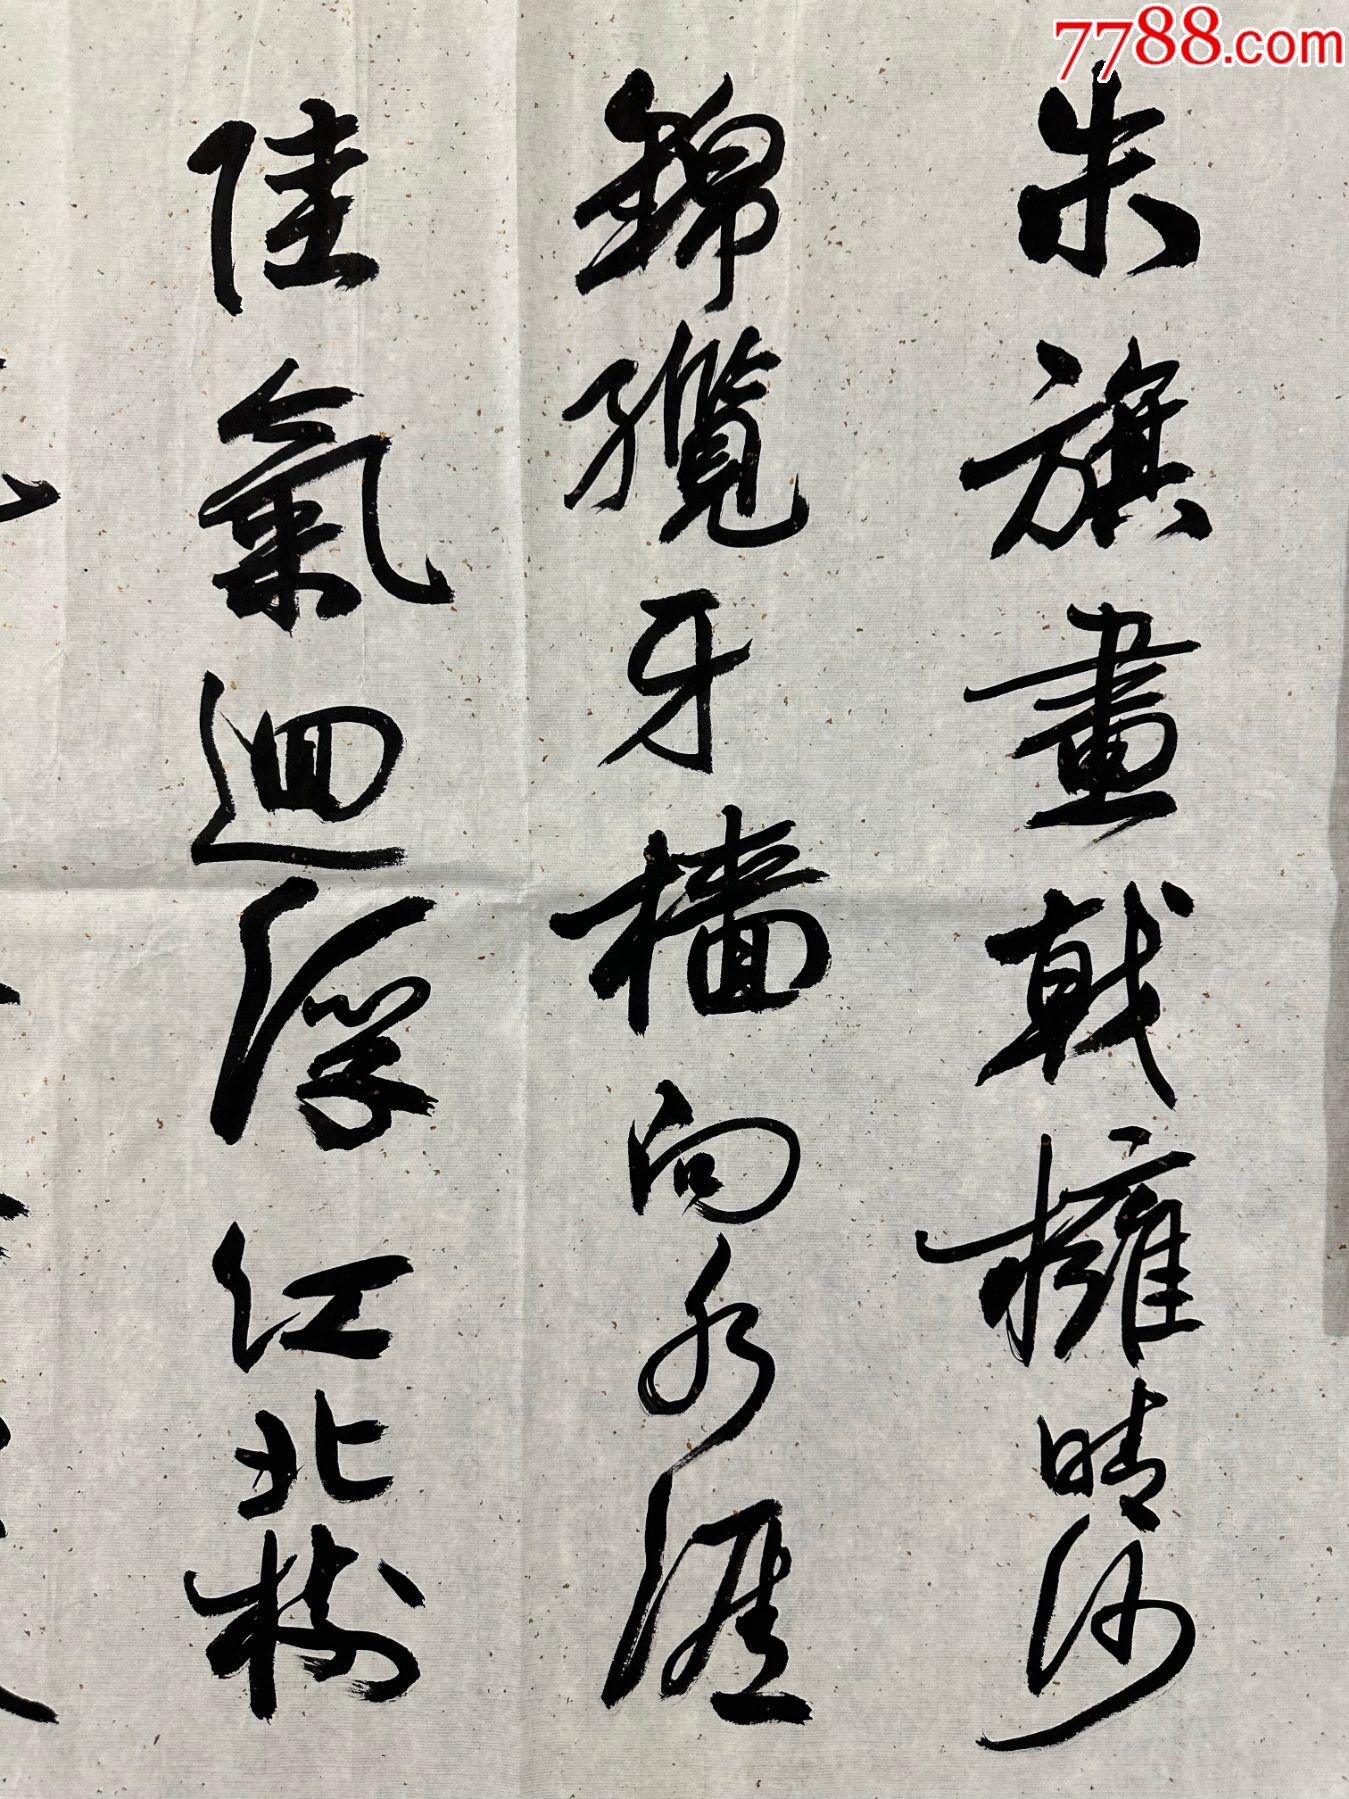 朱旗畫戟擁晴沙
錦纜牙檣向水涯
佳氣迴浮江北樹
7788.com